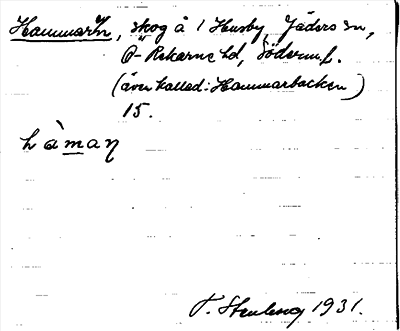 Hammar'n, skog å 1 Husby, Jäders sn,
Ö-Rekarne hd, Söderml.
(även kallad: Hammarbacken)
15.
hàmaṇ
T. Stenberg 1931.